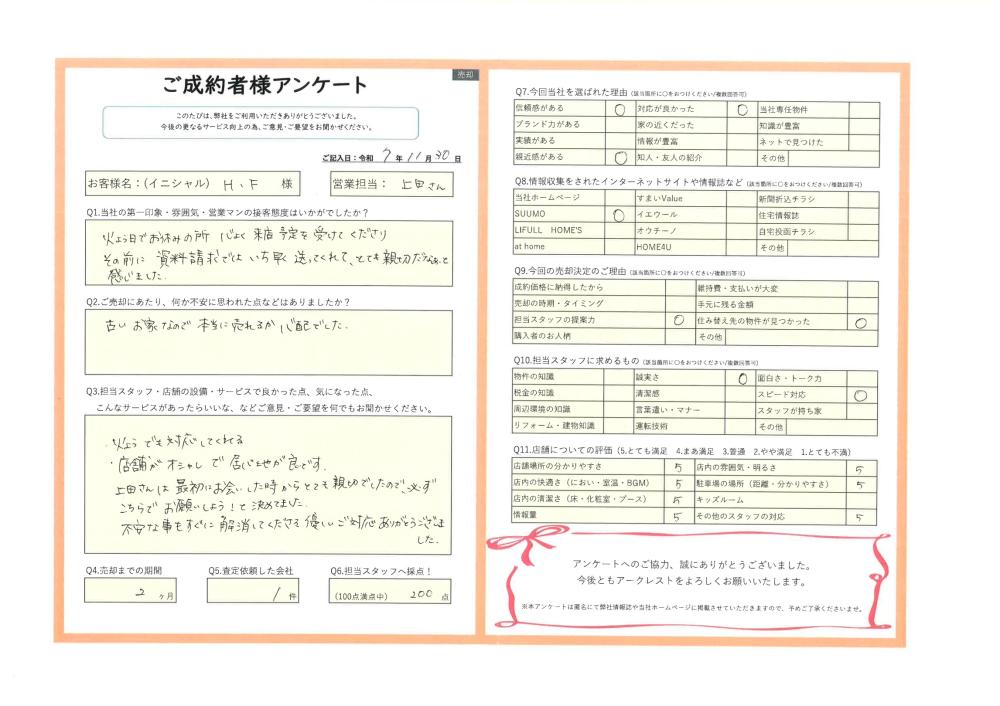 売却
ご成約者様アンケート
このたびは、弊社をご利用いただきありがとうございました。
今後の更なるサービス向上の為、ご意見・ご要望をお聞かせください。
ご記入日：令和 7 年 11 月 30 日
お客様名：(イニシャル) H、F 様 営業担当： 上田さん
Q1.当社の第一印象・雰囲気・営業マンの接客態度はいかがでしたか？
火よう日でお休みの所 心よく来店予定を受けてくださり
その前に 資料請求ではいち早く送ってくれて、とても親切だなぁ、と
感じました。
Q2.ご売却にあたり、何か不安に思われた点などはありましたか？
古いお家なので本当に売れるか心配でした。
Q3.担当スタッフ・店舗の設備・サービスで良かった点、気になった点、
こんなサービスがあったらいいな、などご意見・ご要望を何でもお聞かせください。
・火ようでも対応してくれる
・店舗がオシャレで居心地が良です。
上田さんは最初にお会いした時からとても親切でしたので、必ず
こちらでお願いしよう！と決めてました。
不安な事もすぐに解消してくださる優しいご対応ありがとうございま
した。
Q4.売却までの期間 Q5.査定依頼した会社 Q6.担当スタッフへ採点！
2 ヶ月 1 件 (100点満点中) 200 点
Q7.今回当社を選ばれた理由 (該当箇所に〇をおつけください/複数回答可)
信頼感がある 〇 対応が良かった 〇 当社専任物件
ブランド力がある 家の近くだった 知識が豊富
実績がある 情報が豊富 ネットで見つけた
親近感がある 〇 知人・友人の紹介 その他
Q8.情報収集をされたインターネットサイトや情報誌など (該当箇所に〇をおつけください/複数回答可)
当社ホームページ すまいValue 新聞折込チラシ
SUUMO 〇 イエウール 住宅情報誌
LIFULL HOME'S オウチーノ 自宅投函チラシ
at home HOME4U その他
Q9.今回の売却決定のご理由 (該当箇所に〇をおつけください/複数回答可)
成約価格に納得したから 維持費・支払いが大変
売却の時期・タイミング 手元に残る金額
担当スタッフの提案力 〇 住み替え先の物件が見つかった 〇
購入者のお人柄 その他
Q10.担当スタッフに求めるもの (該当箇所に〇をおつけください/複数回答可)
物件の知識 誠実さ 〇 面白さ・トーク力
税金の知識 清潔感 スピード対応 〇
周辺環境の知識 言葉遣い・マナー スタッフが持ち家
リフォーム・建物知識 運転技術 その他
Q11.店舗についての評価 (5.とても満足 4.まあ満足 3.普通 2.やや満足 1.とても不満)
店舗場所の分かりやすさ 5 店内の雰囲気・明るさ 5
店内の快適さ（におい・室温・BGM） 5 駐車場の場所（距離・分かりやすさ） 5
店内の清潔さ（床・化粧室・ブース） 5 キッズルーム
情報量 5 その他のスタッフの対応 5
アンケートへのご協力、誠にありがとうございました。
今後ともアークレストをよろしくお願いいたします。
※本アンケートは匿名にて弊社情報誌や当社ホームページに掲載させていただきますので、予めご了承くださいませ。